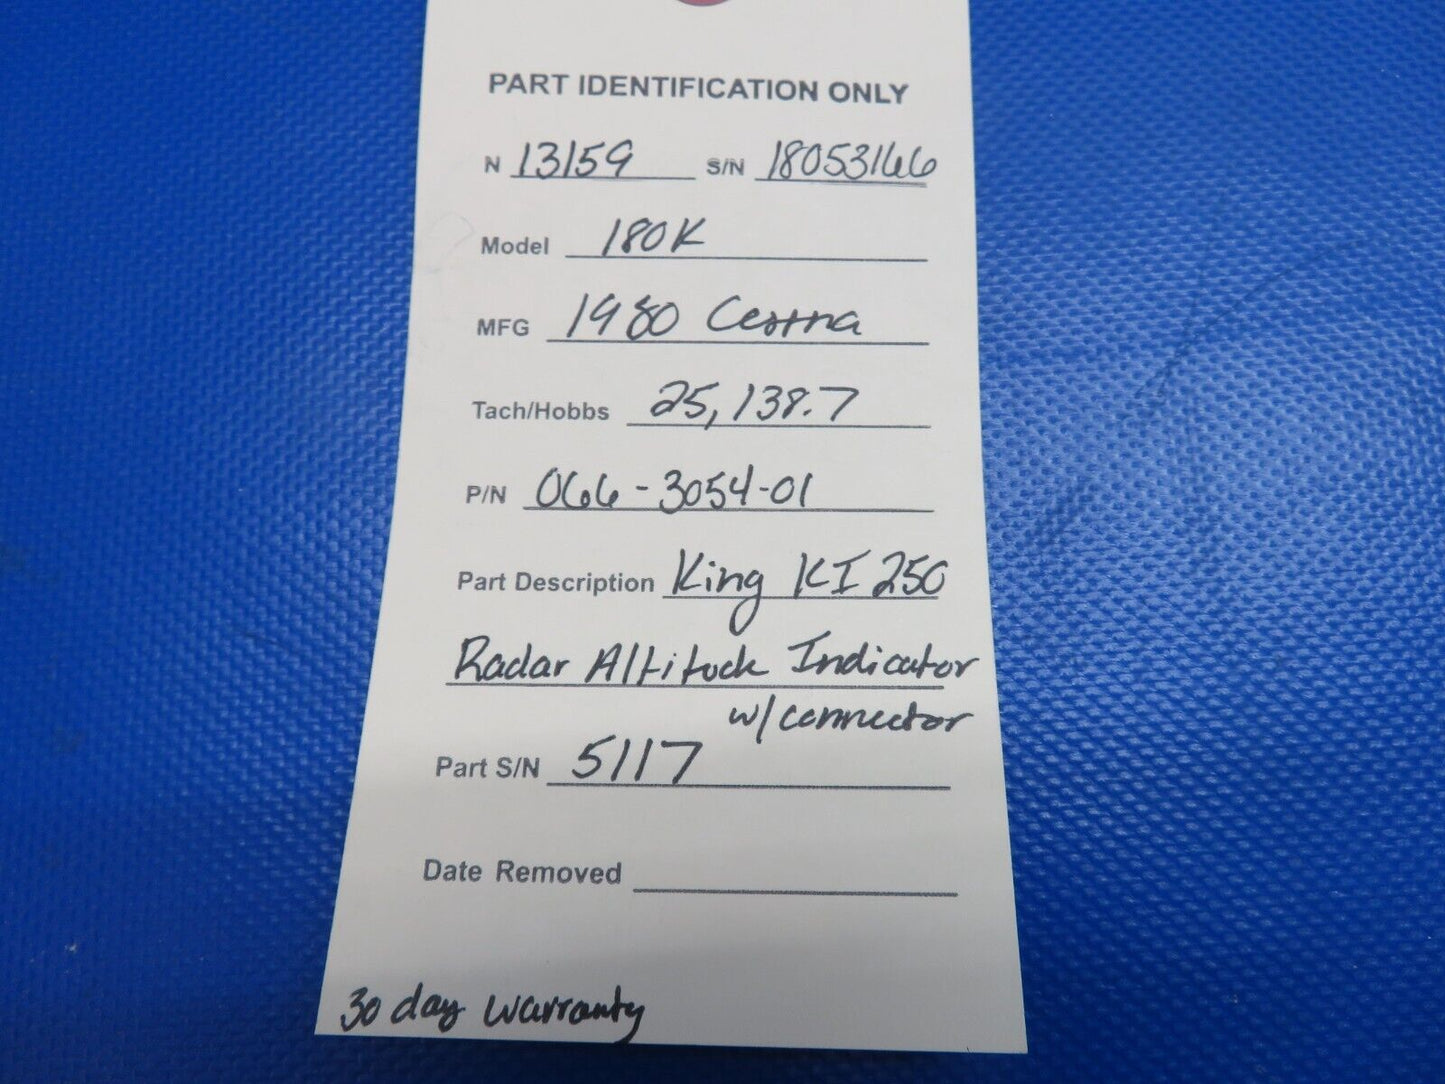 PART IDENTIFICATION ONLY
N 13159 S/N 18053166
Model 180K
MFG 1980 Cessna
Tach/Hobbs 25,138.7
P/N 066-3054-01
Part Description King KI 250
Radar Altitude Indicator
w/connector
Part S/N 5117
Date Removed
30 day warranty